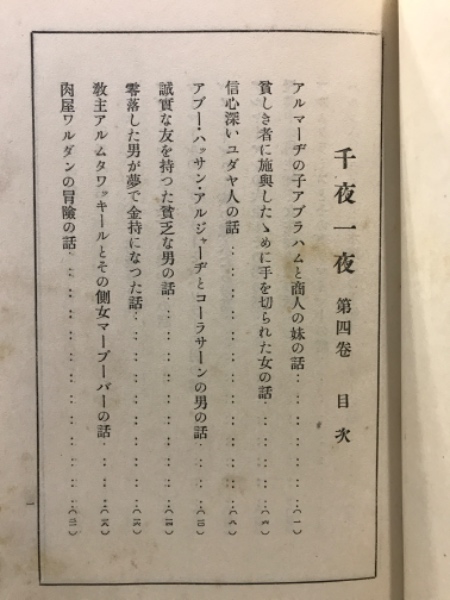 千夜一夜 第四卷 目次
アルマーヂの子アブラハムと商人の妹の話…………(一)
貧しき者に施與したゝめに手を切られた女の話…………(六)
信心深いユダヤ人の話…………(八)
アブー・ハッサン・アルジャーヂとコーラサーンの男の話…………
誠實な友を持つた貧乏な男の話…………
零落した男が夢で金持になつた話…………
敎主アルムタワッキールとその側女マーブーバーの話…………
肉屋ワルダンの冒險の話…………
一